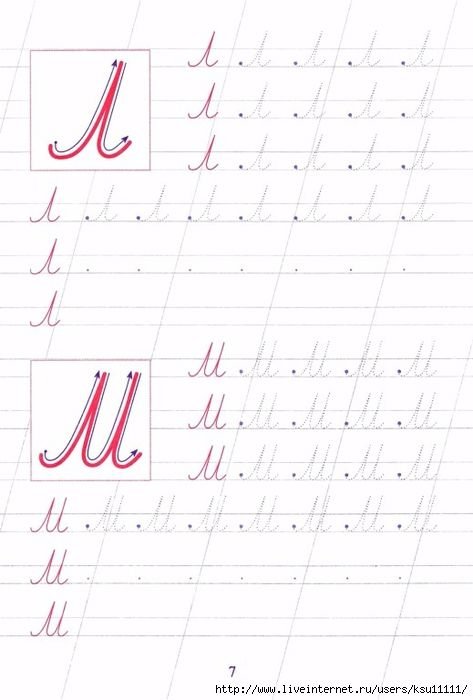 Л
Л Л Л Л Л
Л Л Л Л Л
Л Л Л Л Л
Л Л Л Л Л Л Л Л
Л
Л
М
М М М М М
М М М М М
М М М М М
М М М М М М М М
М
М
7
http://www.liveinternet.ru/users/ksu11111/